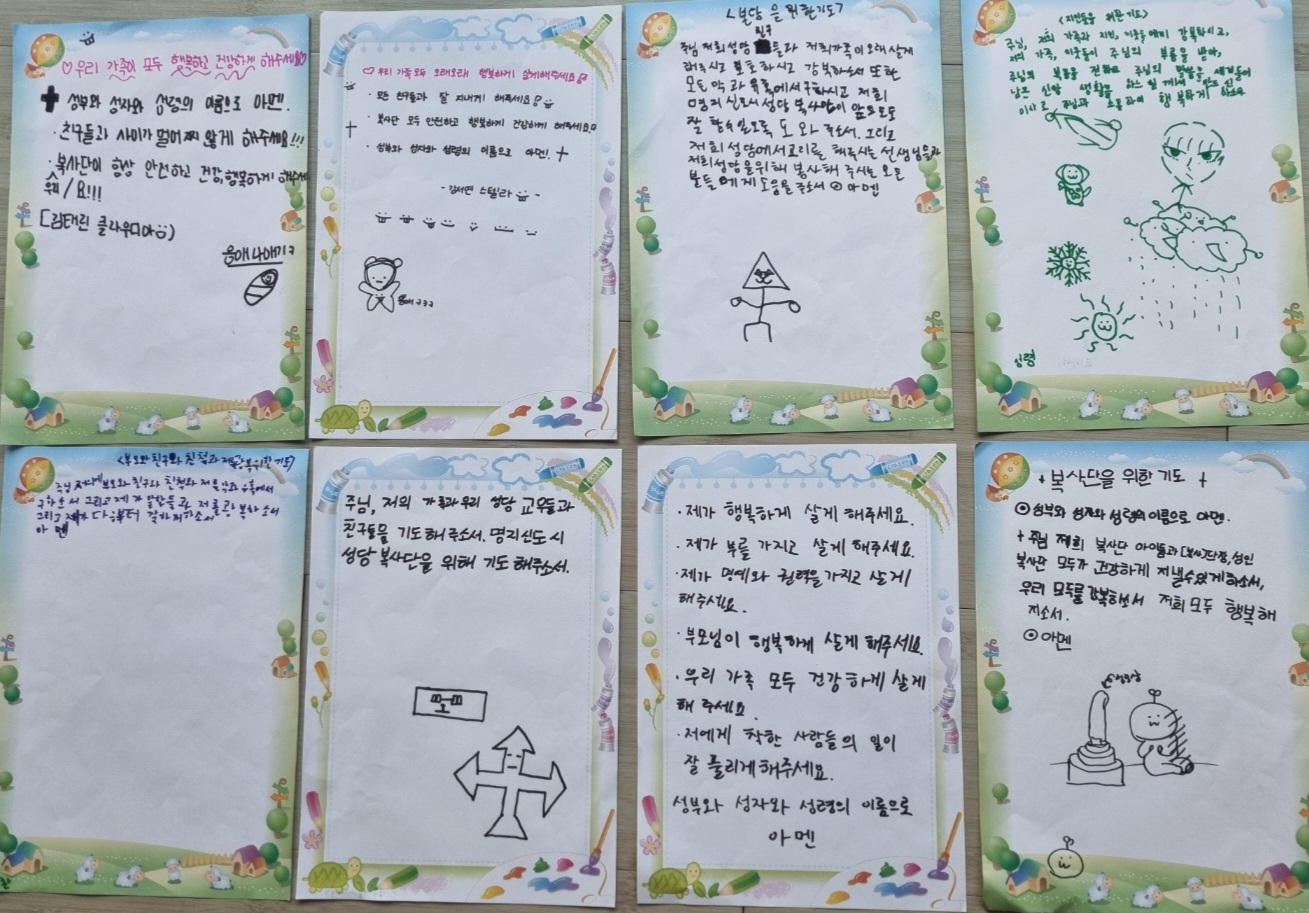 ♡우리 가족이 모두 행복하고 건강하게 해주세요♡
성부와 성자와 성령의 이름으로 아멘.
· 친구들과 사이가 멀어지지 않게 해주세요!!!
· 복사단이 항상 안전하고 건강 행복하게 해주세
요!!!
[김태린 클라우디아]
응애 나 애기
♡ 우리 가족 모두 오래오래 행복하게 살게해주세요
· 모든 친구들과 잘 지내게 해주세요!
· 복사단 모두 안전하고 행복하게 건강하게 해주세요
· 성부와 성자와 성령의 이름으로 아멘!
- 김서연 스텔라 -
응애
<성당을 위한기도>
친구
주님 저희성당 들과 저희가족이 오래 살게
해주시고 보호하시고 강복하소서 또한
모든 악과 유혹에서 구하시고 저희
명지 신도시성당 복사단이 앞으로도
잘 할수 있도록 도와 주소서. 그리고
저희 성당에서 교리를 해주시는 선생님들과
저희성당을위해 봉사해 주시는 모든
분들에게 도움을 주소서 ⊙ 아멘
<지인들을 위한 기도>
주님, 저희 가족과 지인, 이웃들에게 강복하시고,
저의 가족, 이웃들이 주님의 부름을 받아,
주님의 복음을 전하고 주님의 말씀을
남은 신앙 생활을
주님과 행복하게 하소서
성령
<부모와 친구와 친척과 위한 기도>
주님 저에게 부모와 친구와 친척와 저를 악과 유혹에서
구하소서 그리고 제가
그리고
아멘
주님, 저의 가족과 우리 성당 교우들과
친구들을 기도해 주소서. 명지신도시
성당 복사단을 위해 기도 해주소서.
· 제가 행복하게 살게 해주세요.
· 제가 부를 가지고 살게 해주세요.
· 제가 명예와 권력을 가지고 살게
해주세요.
· 부모님이 행복하게 살게 해주세요.
· 우리 가족 모두 건강하게 살게
해 주세요.
· 저에게 착한 사람들의 일이
잘 풀리게해주세요.
성부와 성자와 성령의 이름으로
아멘
+ 복사단을 위한 기도 +
⊙ 성부와 성자와 성령의 이름으로 아멘.
+ 주님 저희 복사단 아이들과 [복사]단장, 성인
복사단 모두가 건강하게 지낼수있게하소서,
우리 모두를 강복하소서 저희 모두 행복해
지소서.
⊙ 아멘